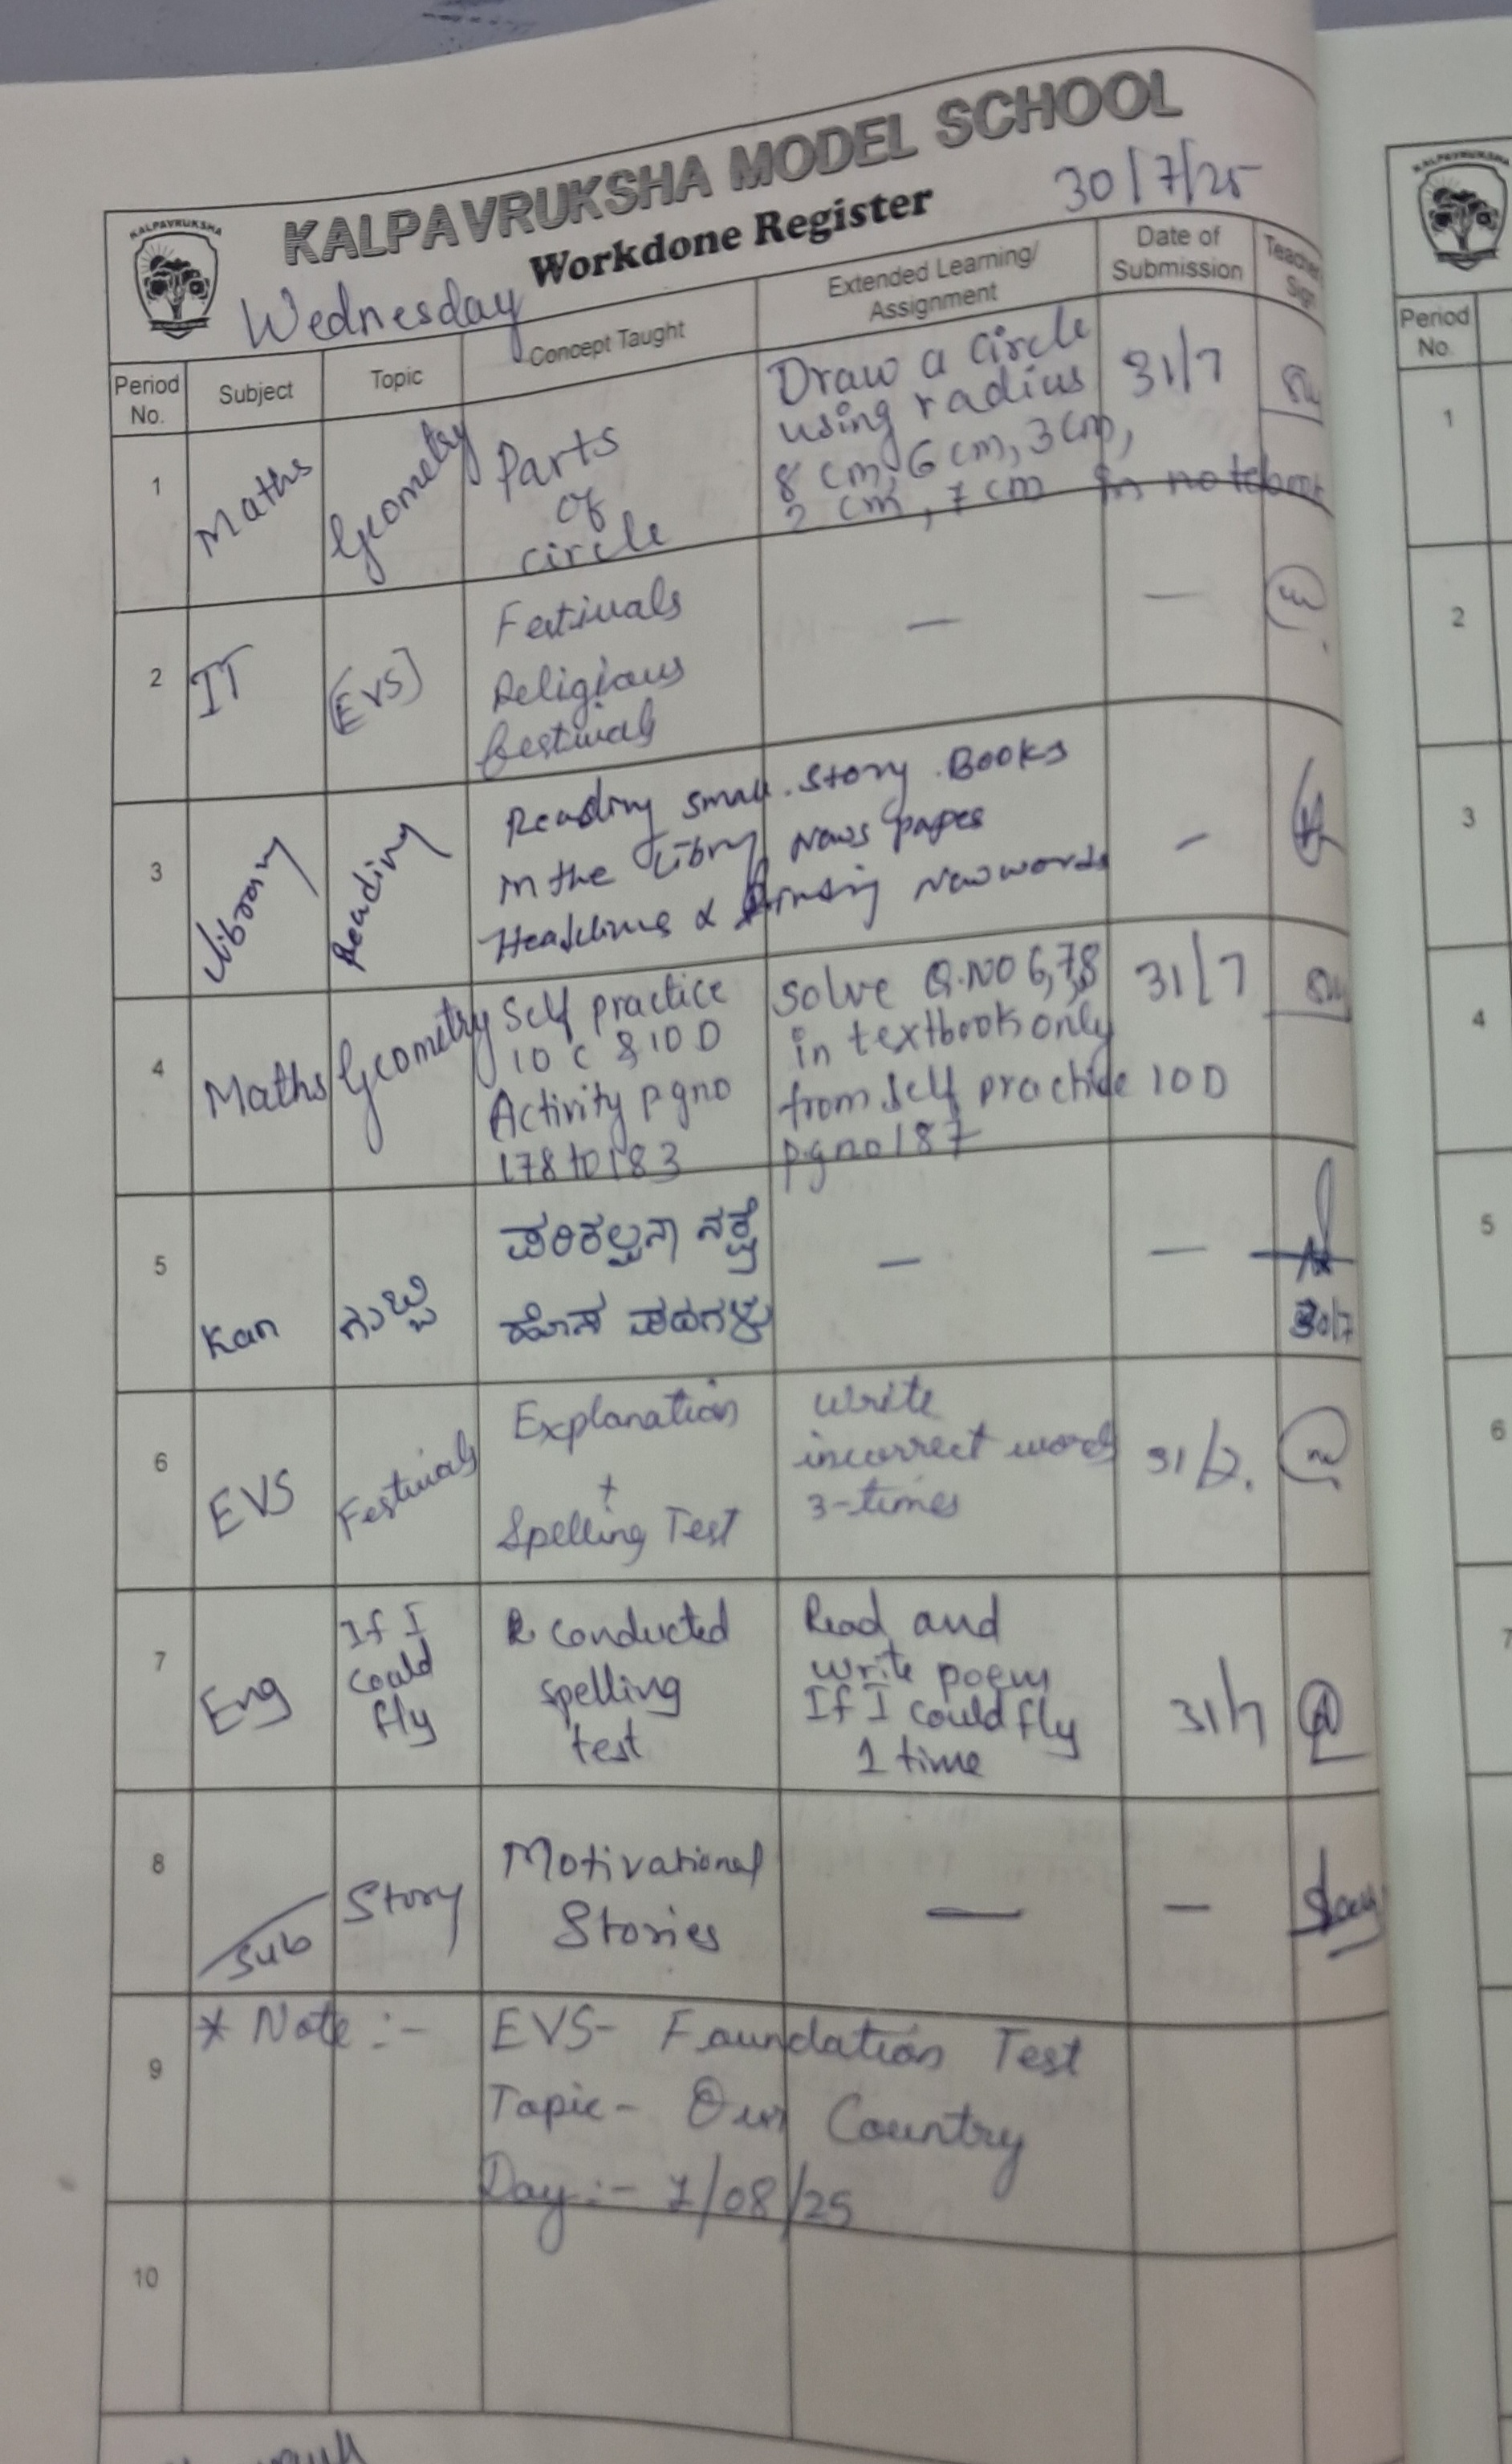 KALPAVRUKSHA MODEL SCHOOL
KALPAVRUKSHA
Workdone Register
30/7/25
Wednesday
Period No.
Subject
Topic
Concept Taught
Extended Learning/ Assignment
Date of Submission
Teacher Sign
1
Maths
Geometry
Parts
of
circle
Draw a circle
using radius
8 cm, 6 cm, 3 cm,
2 cm, 7 cm in notebook
31/7
2
IT
(EVS)
Festivals
Religious
festivals
—
—
3
Library
Reading
Reading small story Books
in the Library News papers
Headlines & finding New words
-
4
Maths
Geometry
Self practice
10 C & 10 D
Activity pgno
178 to 183
Solve Q.NO 6,7,8
in textbook only
from self practice 10 D
pgno 187
31/7
5
Kan
ಗುಬ್ಬಿ
ಪರಿಕಲ್ಪನಾ ನಕ್ಷೆ
ಹೊಸ ಪದಗಳು
—
—
30/7
6
EVS
Festivals
Explanation
+
Spelling Test
Write
incorrect word
3-times
31/7.
7
Eng
If I
could
fly
conducted
spelling
test
Read and
write poem
If I could fly
1 time
31/7
8
Sub
Story
Motivational
Stories
—
—
9
* Note :-
EVS- Foundation Test
Topic- Our Country
Day :- 1/08/25
10
Period No.
1
2
3
4
5
6
7